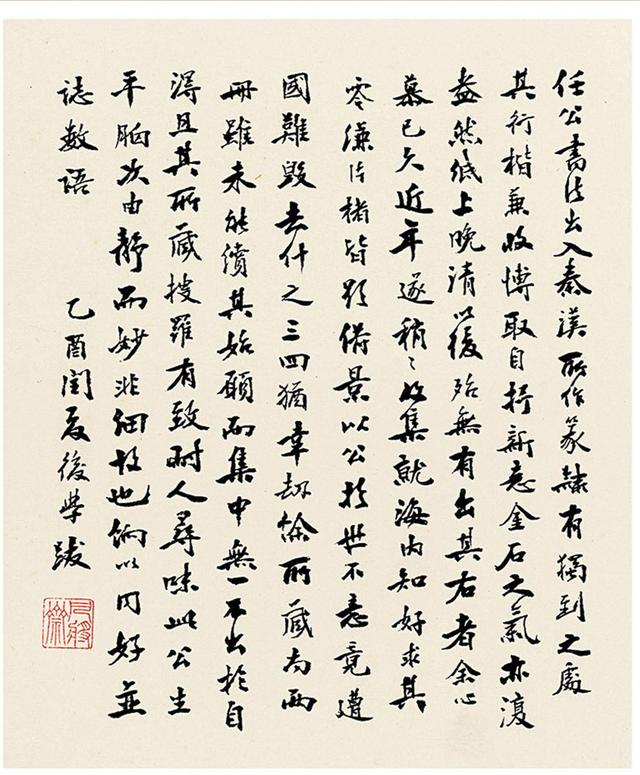 任公書法出入秦漢所作篆隸有獨到之處
其行楷兼收博取自抒新意金石之氣亦復
盎然紙上晚清以後殆無有出其右者余心
慕已久近年遂稍稍收集就海内知好求其
零縑片楮皆影借景以公於世不意竟遭
國難毀去什之三四猶幸劫餘所藏尚两
冊雖未能續其始願而集中無一不出於自
淂且其所藏搜羅有致耐人尋味此公生
平胸次由靜而妙非細故也餉以同好並
誌數語
乙酉閏夏後學跋